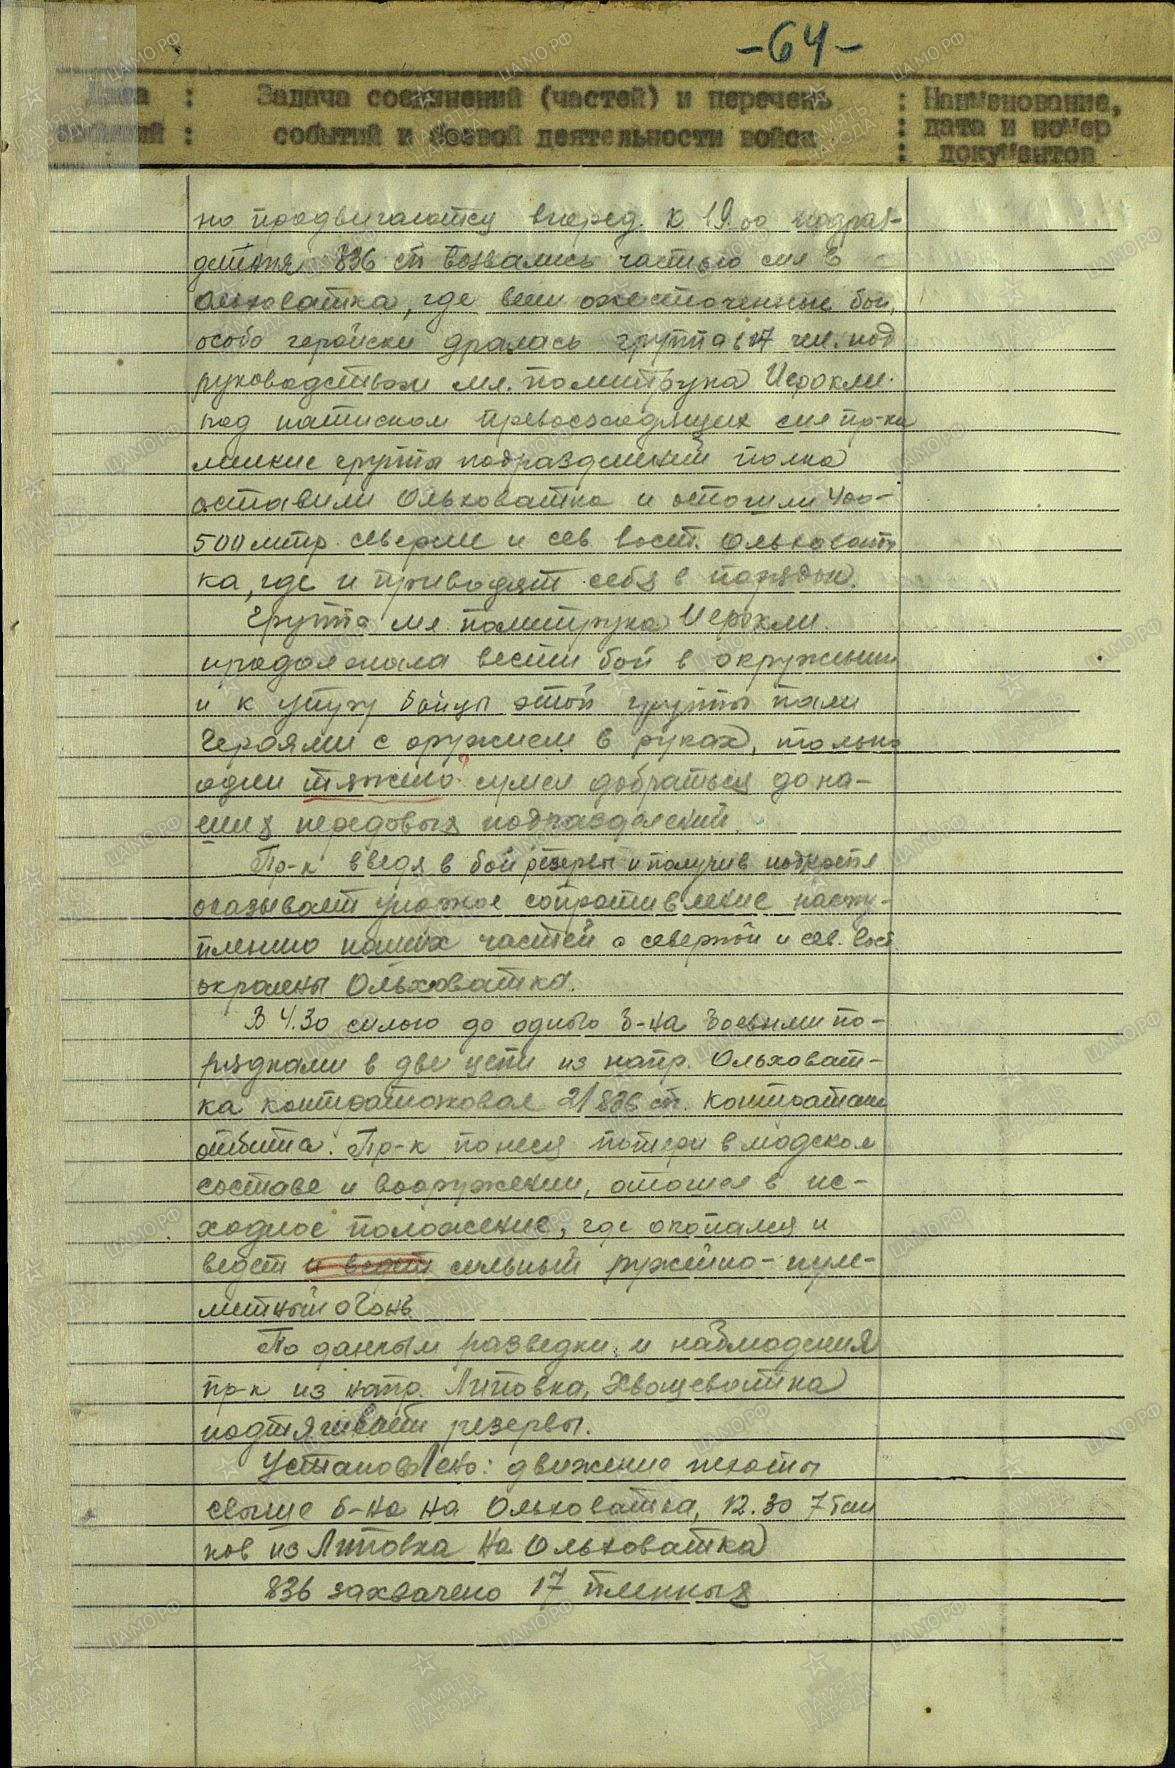 -64-
Дата : Задача соединений (частей) и перечень : Наименование,
событий : событий и боевой деятельности войск : дата и номер
: документов
но продвигаются вперед. К 19.00 подраз-
деления 836 сп ворвались частью сил в
Ольховатка, где вели ожесточенные бои,
особо геройски дралась группа в 17 чел. под
руководством мл. политрука
под натиском превосходящих сил пр-ка
мелкие группы подразделений полка
оставили Ольховатка и отошли 400-
500 мтр. севернее и сев. вост. Ольховат
ка, где и приводят себя в порядок.
Группа мл. политрука
продолжала вести бой в окружении
и к утру бойцы этой группы пали
Героями с оружием в руках, только
один тяжело сумел добраться до на-
ших передовых подразделений.
Пр-к введя в бой резервы и получив подкрепл
оказывает упорное сопротивление насту-
плению наших частей с северной и сев. вост
окраены Ольховатка.
В 4.30 силою до одного б-на боевыми по-
рядками в две цепи из напр. Ольховат-
ка контратаковал 2/836 сп. Контратака
отбита. Пр-к понеся потери в людском
составе и вооружении, отошел в ис-
ходное положение, где окопался и
ведет и ведет сильный ружейно-пуле-
метный огонь
По данным разведки и наблюдения
пр-к из напр. Липовка, Хвощеватка
подтягивает резервы.
Установлено: движение пехоты
свыше б-на на Ольховатка, 12.30 7 тан
ков из Липовка на Ольховатка
836 захвачено 17 пленных